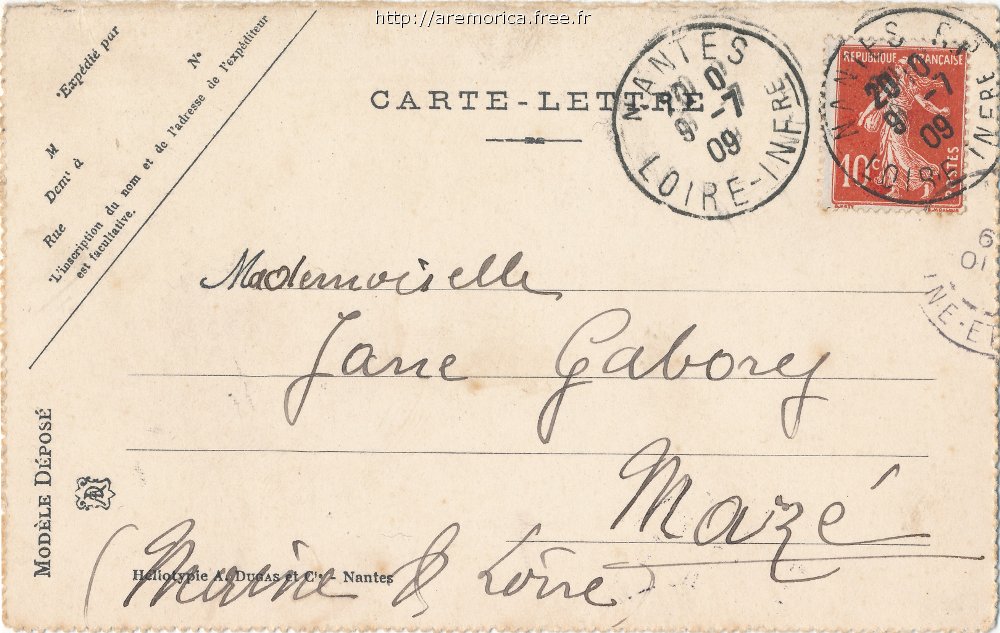 http://aremorica.free.fr
*Expédié par
N°
M
Demt à
Rue
*L'inscription du nom et de l'adresse de l'expéditeur
est facultative.
CARTE-LETTRE
NANTES
20
7
09
LOIRE-INFRE
RÉPUBLIQUE FRANÇAISE
10c
POSTES
NANTES
20
-7
09
LOIRE-INFRE
NE-E
Mademoiselle
Jane Gaborey
Mazé
(Maine & Loire)
MODÈLE DÉPOSÉ
AD
Héliotypie A. DUGAS et Cie - Nantes